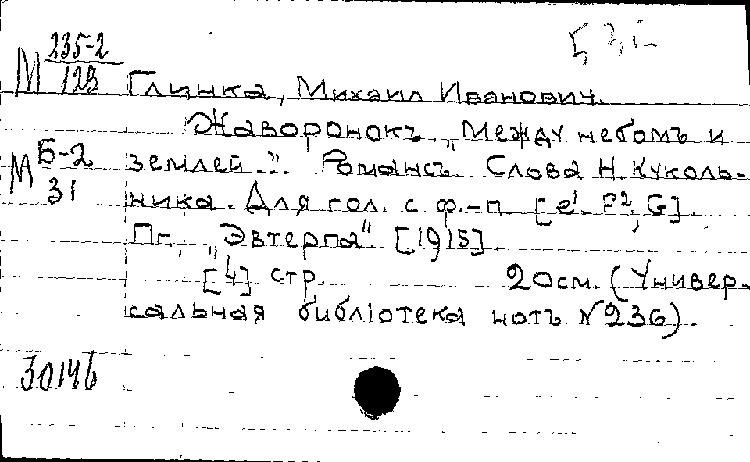 М 235-2/123 Глинка, Михаил Иванович.
Жаворонокъ. „Между небомъ и
М Б-2/31 землей..." Романсъ. Слова Н. Куколь-
ника. Для гол. с ф.-п. [e¹- F², G].
Пг. „Эвтерпа" [1915]
[4] стр. 20см. (Универ-
сальная библіотека нотъ №236).
30146